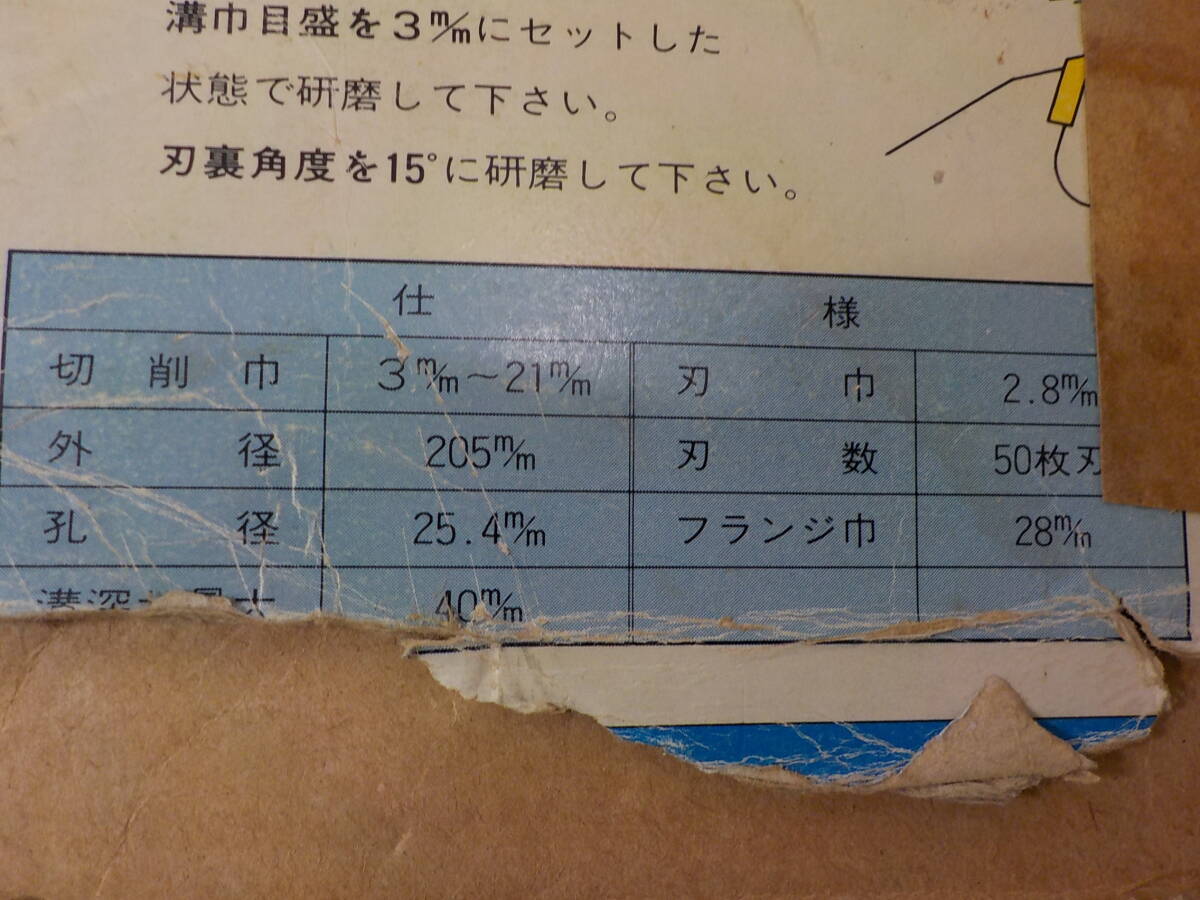 溝巾目盛を3m/mにセットした
状態で研磨して下さい。
刃裏角度を15°に研磨して下さい。
仕様
切削巾 3m/m～21m/m 刃巾 2.8m/m
外径 205m/m 刃数 50枚刃
孔径 25.4m/m フランジ巾 28m/m
溝深さ最大 40m/m